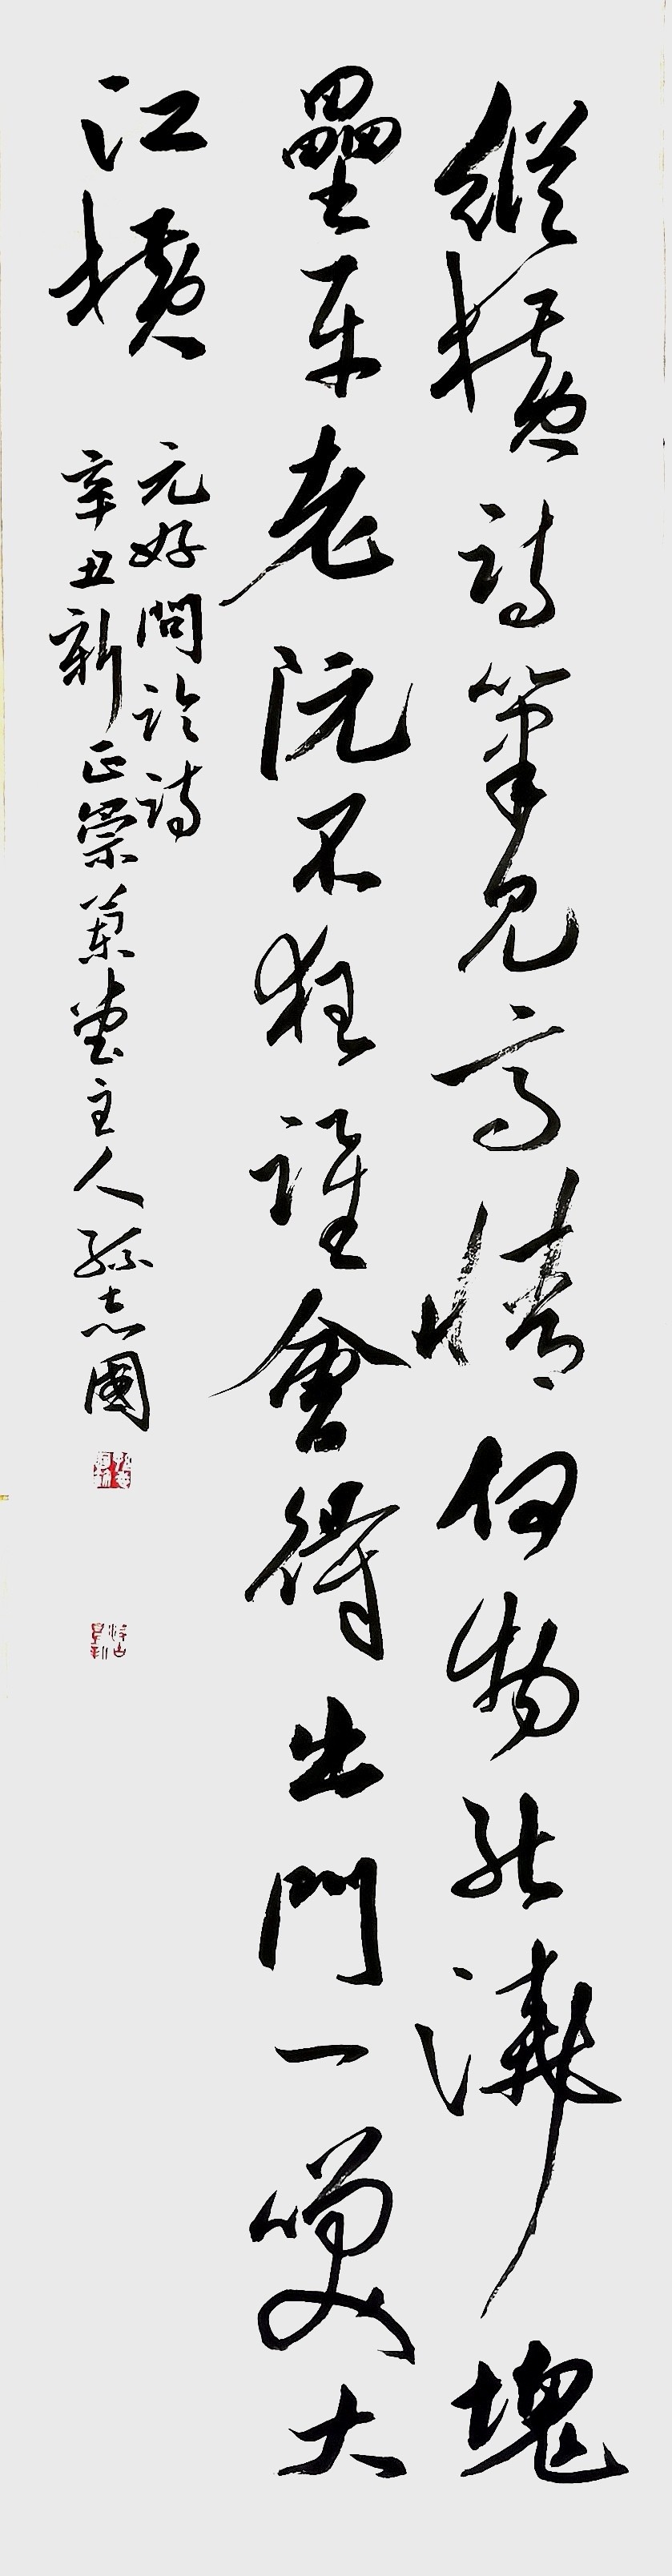 縱橫詩筆見高情何物能澆塊
壘平老阮不狂誰會得出門一笑大
江橫
元好問論詩
辛丑新正崇蘭堂主人孫志國